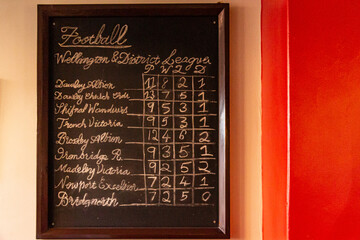 Football
Wellington & District League
P W L D
Dawley Albion 11 8 2 1
Dawley 13 7 5 1
Shifnal Wanderers 9 5 3 1
Trench Victoria 9 5 3 1
Broseley Albion 12 4 6 2
Ironbridge R. 9 3 5 1
Madeley Victoria 9 2 5 2
Newport Excelsior 7 2 4 1
Bridgnorth 7 2 5 0